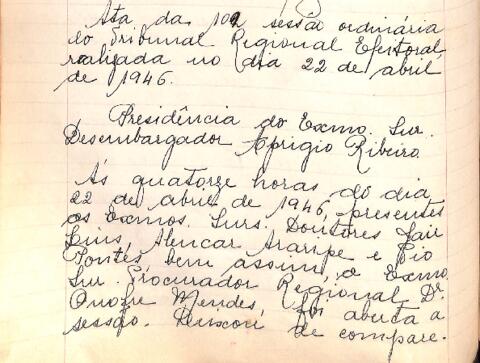 Ata da 10a sessão ordinária
do Tribunal Regional Eleitoral,
realizada no dia 22 de abril
de 1946.
Presidência do Exmo. Snr.
Desembargador Aprigio Ribeiro.
Ás quatorze horas do dia
22 de abril de 1946, presentes
os Exmos. Snrs. Doutores Jair
Lins, Alencar Araripe e Pio
Pontes bem assim, o Exmo.
Snr. Procurador Regional, Dr.
Onofre Mendes, foi aberta a
sessão. de compare.